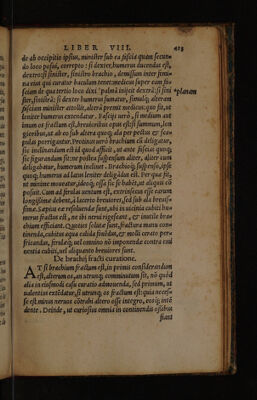 LIBER VIII. 423
de ab occipitio ipsius, minister sub ea fascia quàm secun-
do loco posui, correpto: si dexter humerus ducendus est,
dextro: si sinister, sinistro brachio, demissum inter femi-
na eius qui curatur baculum tenet: medicus super eam fa-
sciam de qua tertio loco dixi palmã iniicit dextrã: si sini *plantam
ster, sinistrã: & simul
fasciam minister attollit, alterã premit medicus: quo fit, ut
leniter humerus extendatur. Fasciis verò, si medium aut
imum os fractum est, brevioribus opus est: si summum, lon
gioribus, ut ab eo sub altera quoq; ala per pectus & sca-
pulas porrigantur. Protinus verò brachium cũ deligatur,
sic inclinandum est: id quod efficit, ut ante fascia quoq;
sic figurandum sit: ne postea suspensum aliter, aliter cum
deligabatur, humerum inclinet. Brachioq; suspenso, ipse
quoq; humerus ad latus leniter deligãdus est. Per quæ fit,
ut minime moveatur, ideoq; ossa sic se habeãt, ut aliquis cõ
posuit. Cum ad ferulas ventum est, extrinsecus esse earum
longissimæ debent, à lacerto breviores, sub ala brevis-
simæ. Sæpius eæ resolvendæ sunt, ubi in vicinia cubiti hu-
merus fractus est, ne ibi nervi rigescant, & inutile bra-
chium efficiant. Quoties solutæ sunt, fractura manu con-
tinenda, cubitus aqua calida fovẽdus, & molli cerato per-
fricandus, ferulæq; vel omnino nõ imponendæ contra emi
nentia cubiti, vel aliquanto breviores sunt.
De brachij fracti curatione.
AT si brachium fractum est, in primis considerandum
est, alterum os, an utrunq; comminutum sit, nõ quòd
alia in eiusmodi casu curatio admovenda, sed primùm, ut
valentius extẽdatur, si utrunq; os fractum est: quia neces-
se est minus nervos cõtrahi altero osse integro, eosq; intẽ
dente. Deinde, ut curiosius omnia in continendis ossibus
fiant